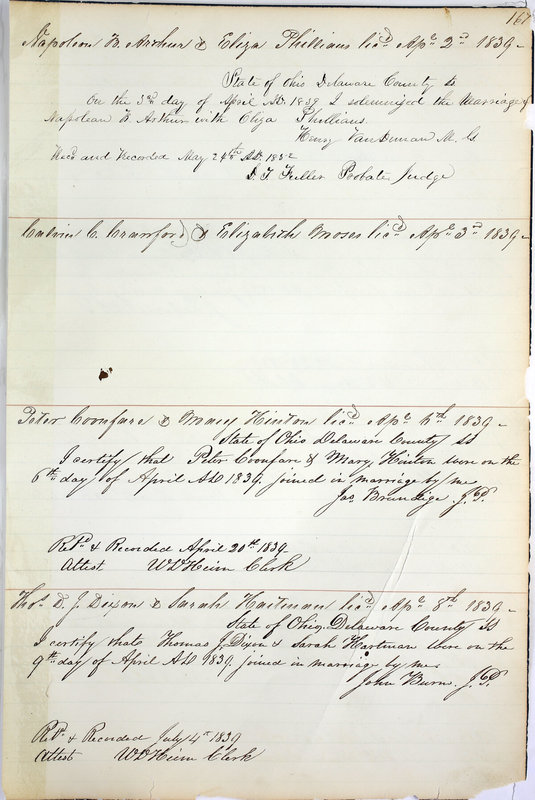 167
Napoleon B. Arthur & Eliza Phillians lic'd Apl 2nd 1839-
State of Ohio Delaware County ss
On the 3rd day of April AD. 1839 I solemnized the Marriage of
Napoleon B. Arthur with Eliza Phillians.
Henry VanDeman M. G.
Rec'd and Recorded May 24th AD. 1852
D. T. Fuller Probate Judge
Calvin C. Crawford & Elizabeth Moses lic'd Apl 3rd 1839-
Peter Coonfare & Mary Hinton lic'd Apl 6th 1839-
State of Ohio Delaware County ss
I certify that Peter Coonfare & Mary Hinton were on the
6th day of April AD 1839. joined in marriage by me
Jas Brundige J.P.
Retd & Recorded April 20th 1839-
Attest WD Heim Clerk
Thos D. J. Dixon & Sarah Hartman lic'd Apl 8th 1839-
State of Ohio. Delaware County ss
I certify that Thomas J. Dixon & Sarah Hartman were on the
9th day of April AD 1839. joined in marriage by me
John Burns. J.P.
Retd & Recorded July 4th 1839
Attest WD Heim Clerk